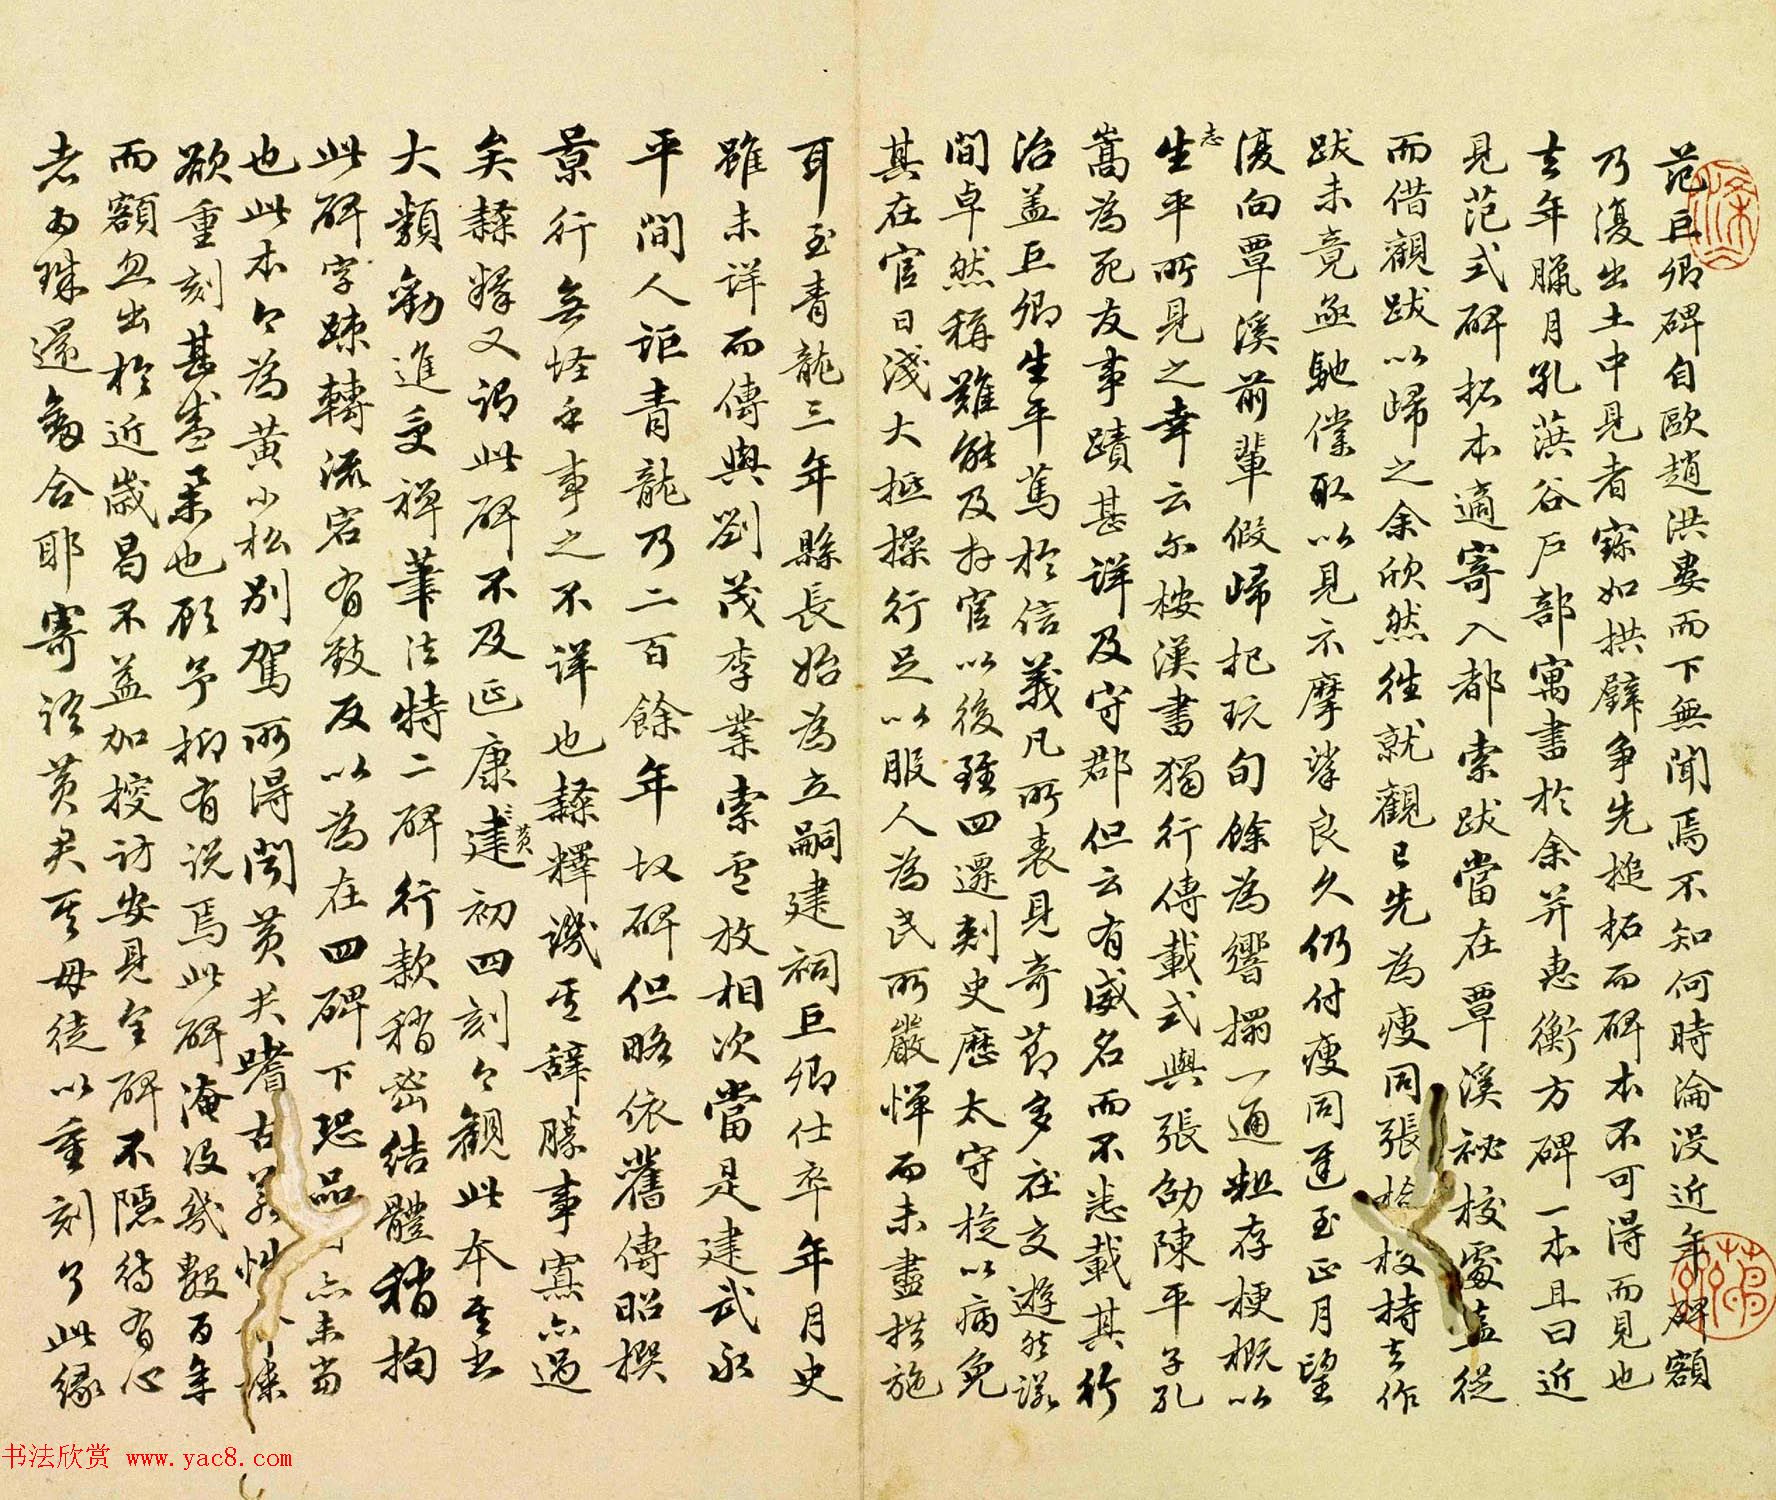 范巨卿碑自歐趙洪婁而下無聞焉不知何時淪没近年碑額
乃復出土中見者寶如拱璧争先搥拓而碑本不可得而見也
去年臘月孔葓谷户部寓書於余并惠衡方碑一本且曰近
見范式碑拓本適寄入都索跋當在覃溪祕校處盍從
而借觀跋以歸之余欣然往就觀已先為瘦同張 持去作
跋未竟亟馳僕取以見示摩挲良久仍付瘦同遲至正月望
復向覃溪前輩假歸把玩旬餘為響搨一通粗存梗概以
志
生平所見之幸云尔桉漢書獨行傳載式與張劭陳平子孔
嵩為死友事蹟甚詳及守郡但云有威名而不悉載其行
治盖巨卿生平篤於信義凡所表見奇節多在交遊然諾
間卓然稱難能及於官以後雖四遷刺史歷太守旋以病免
其在官日淺大抵操行足以服人為民所嚴憚而未盡措施
耳至青龍三年縣長始為立嗣建祠巨卿仕卒年月史
雖未詳而傳與劉茂李業索盧放相次當是建武永
平間人距青龍乃二百餘年故碑但略依舊傳昭撰
景行無怪乎事之不詳也隸釋譏其辭勝事寡亦過
矣隸釋又謂此碑不及延康建
黄
初四刻今觀此本其書
大類勸進受禪筆法特二碑行款稍密結體稍拘
此碑字疎轉流宕有致反以為在四碑下恐品 亦未當
也此本今為黄小松别駕所得聞黄君嗜古
欲重刻甚盛舉也顧予抑有说焉此碑淹没幾數百年
而額忽出於近歲曷不益加搜訪安見全碑不隱待有心
者而珠還劍合耶寄語黄君其毋徒以重刻了此緣
书法欣赏 www.yac8.com